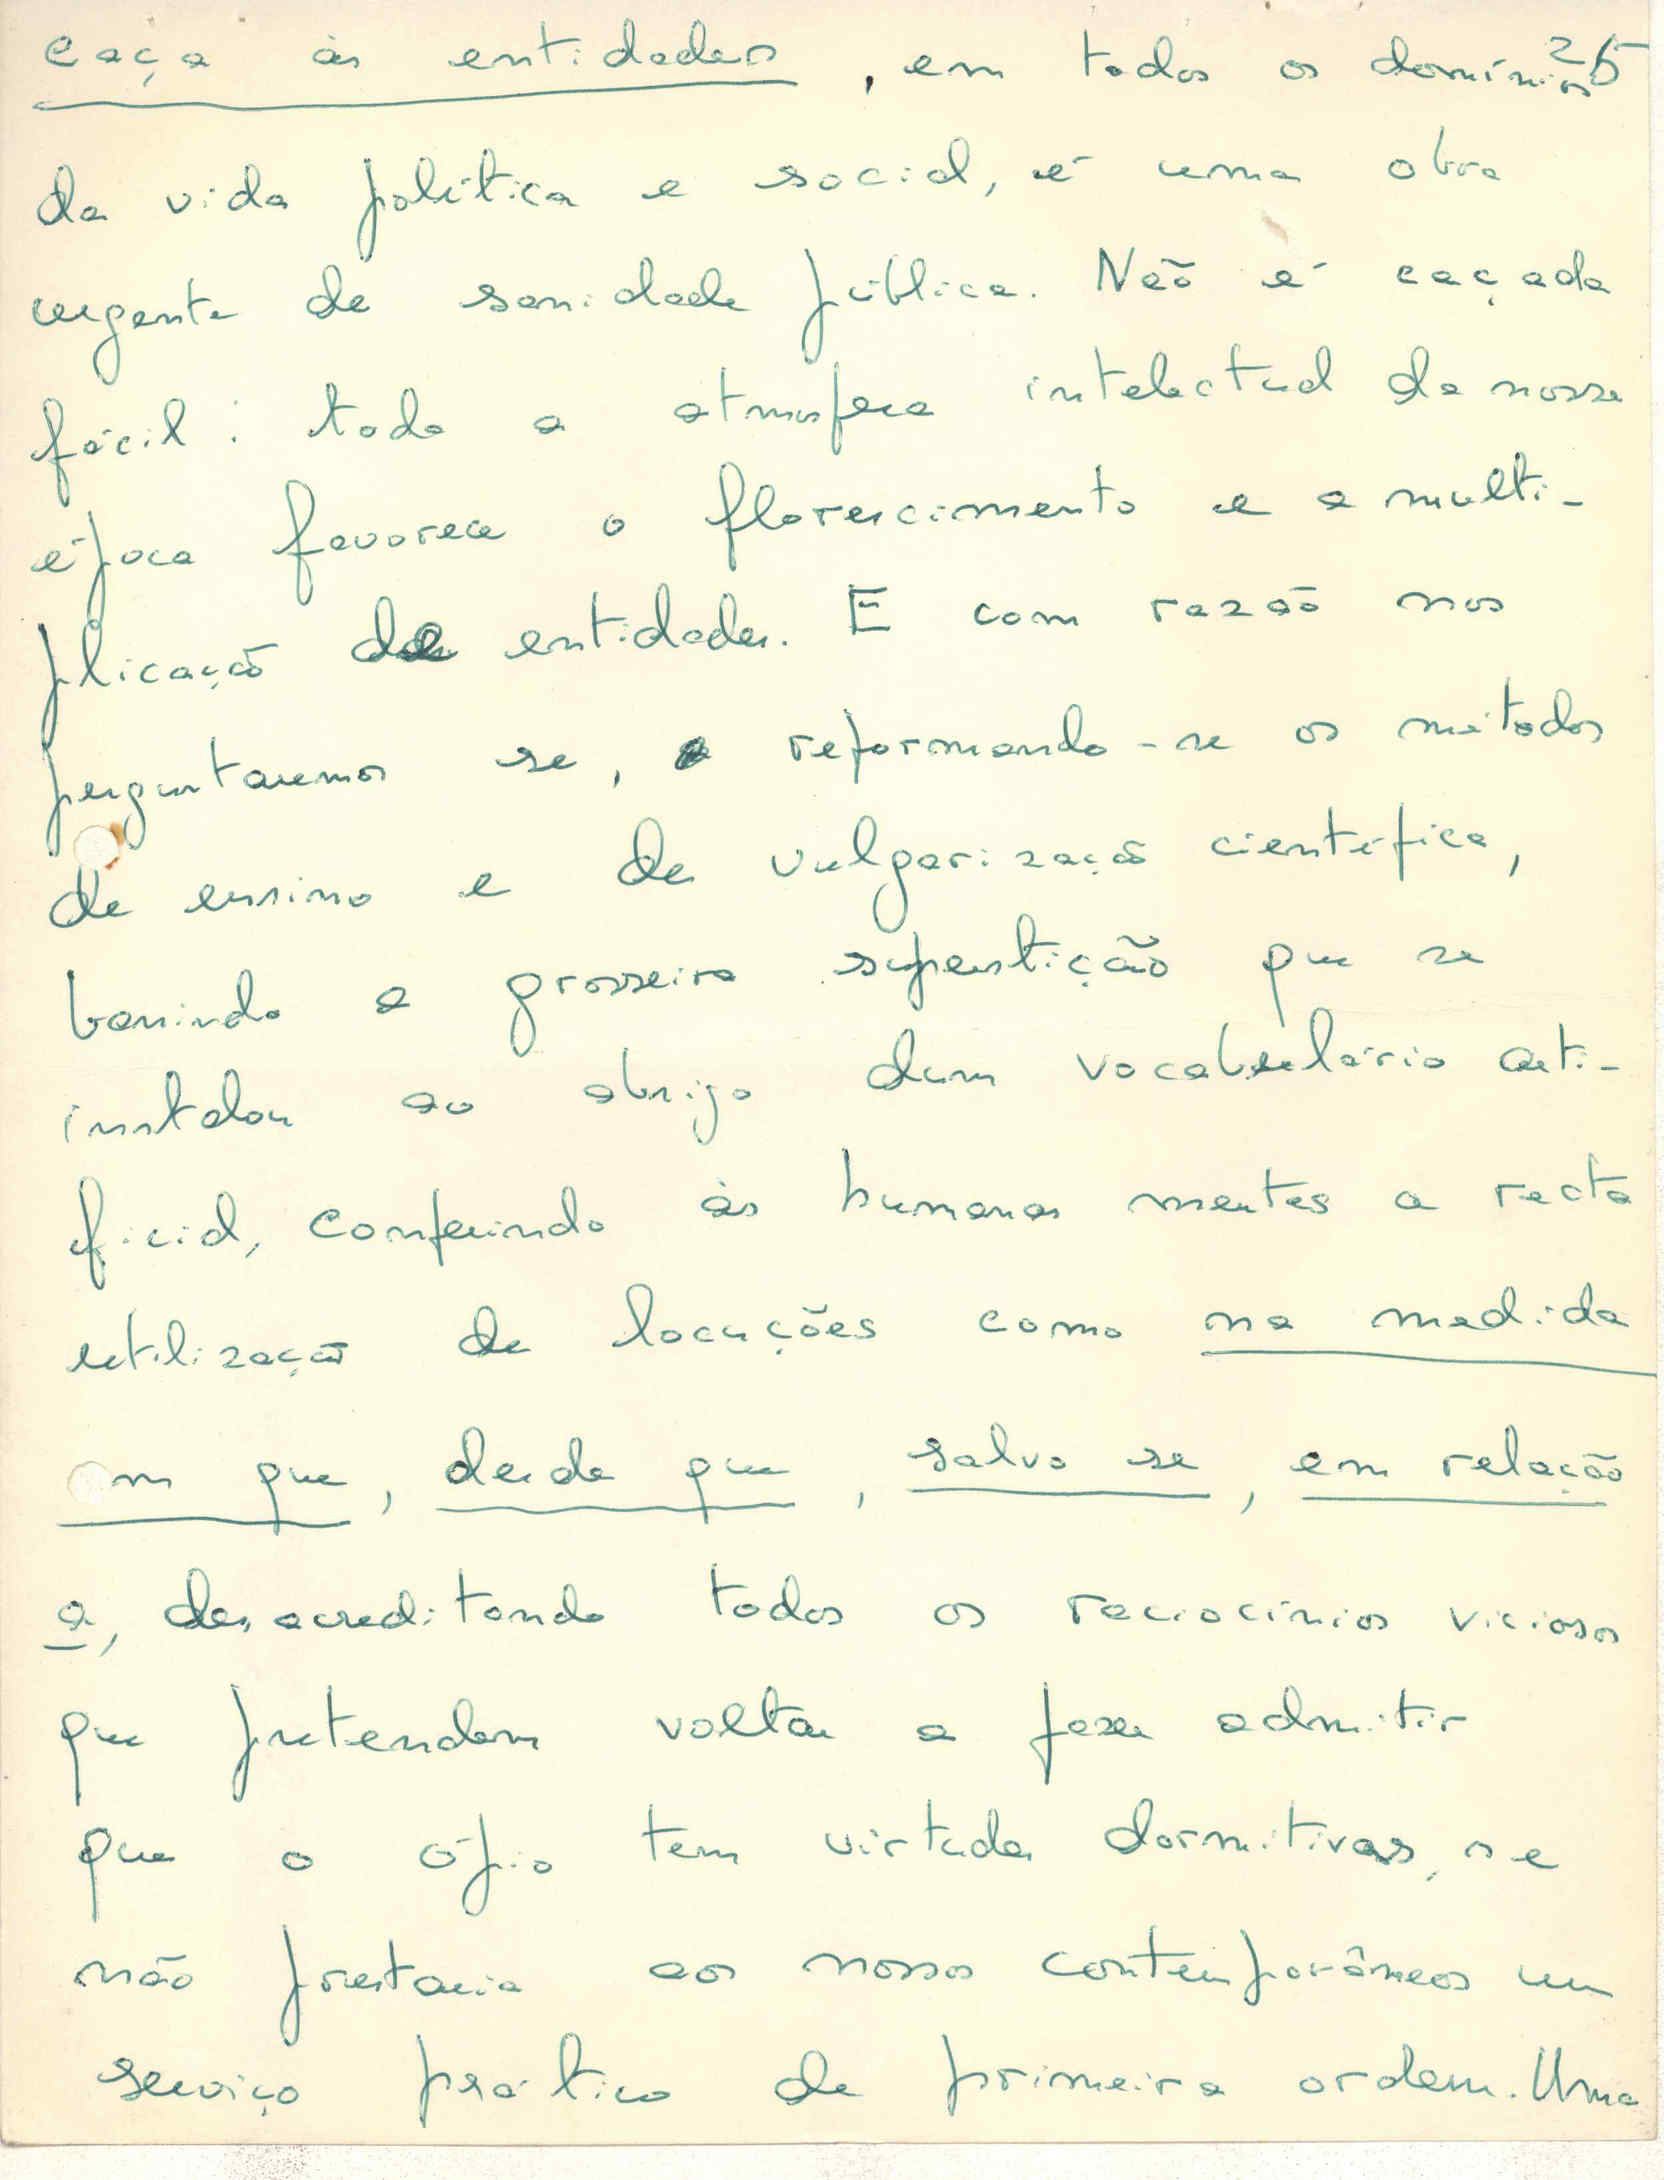 25
caça às entidades, em todos os domínios
da vida política e social, é uma obra
urgente de sanidade pública. Não é caçada
fácil: toda a atmosfera intelectual da nossa
época favorece o florescimento e a multi-
plicação de entidades. E com razão nos
perguntaremos se, reformando-se os métodos
de ensino e de vulgarização científica,
banindo a grosseira superstição que se
instalou ao abrigo dum vocabulário arti-
ficial, conferindo às humanas mentes a recta
utilização de locuções como na medida
em que, desde que, salvo se, em relação
a, desacreditando todos os raciocínios viciosos
que pretendem voltar a fazer admitir
que o ópio tem virtudes dormitivas, se
não prestaria aos nossos contemporâneos um
serviço prático de primeira ordem. Uma